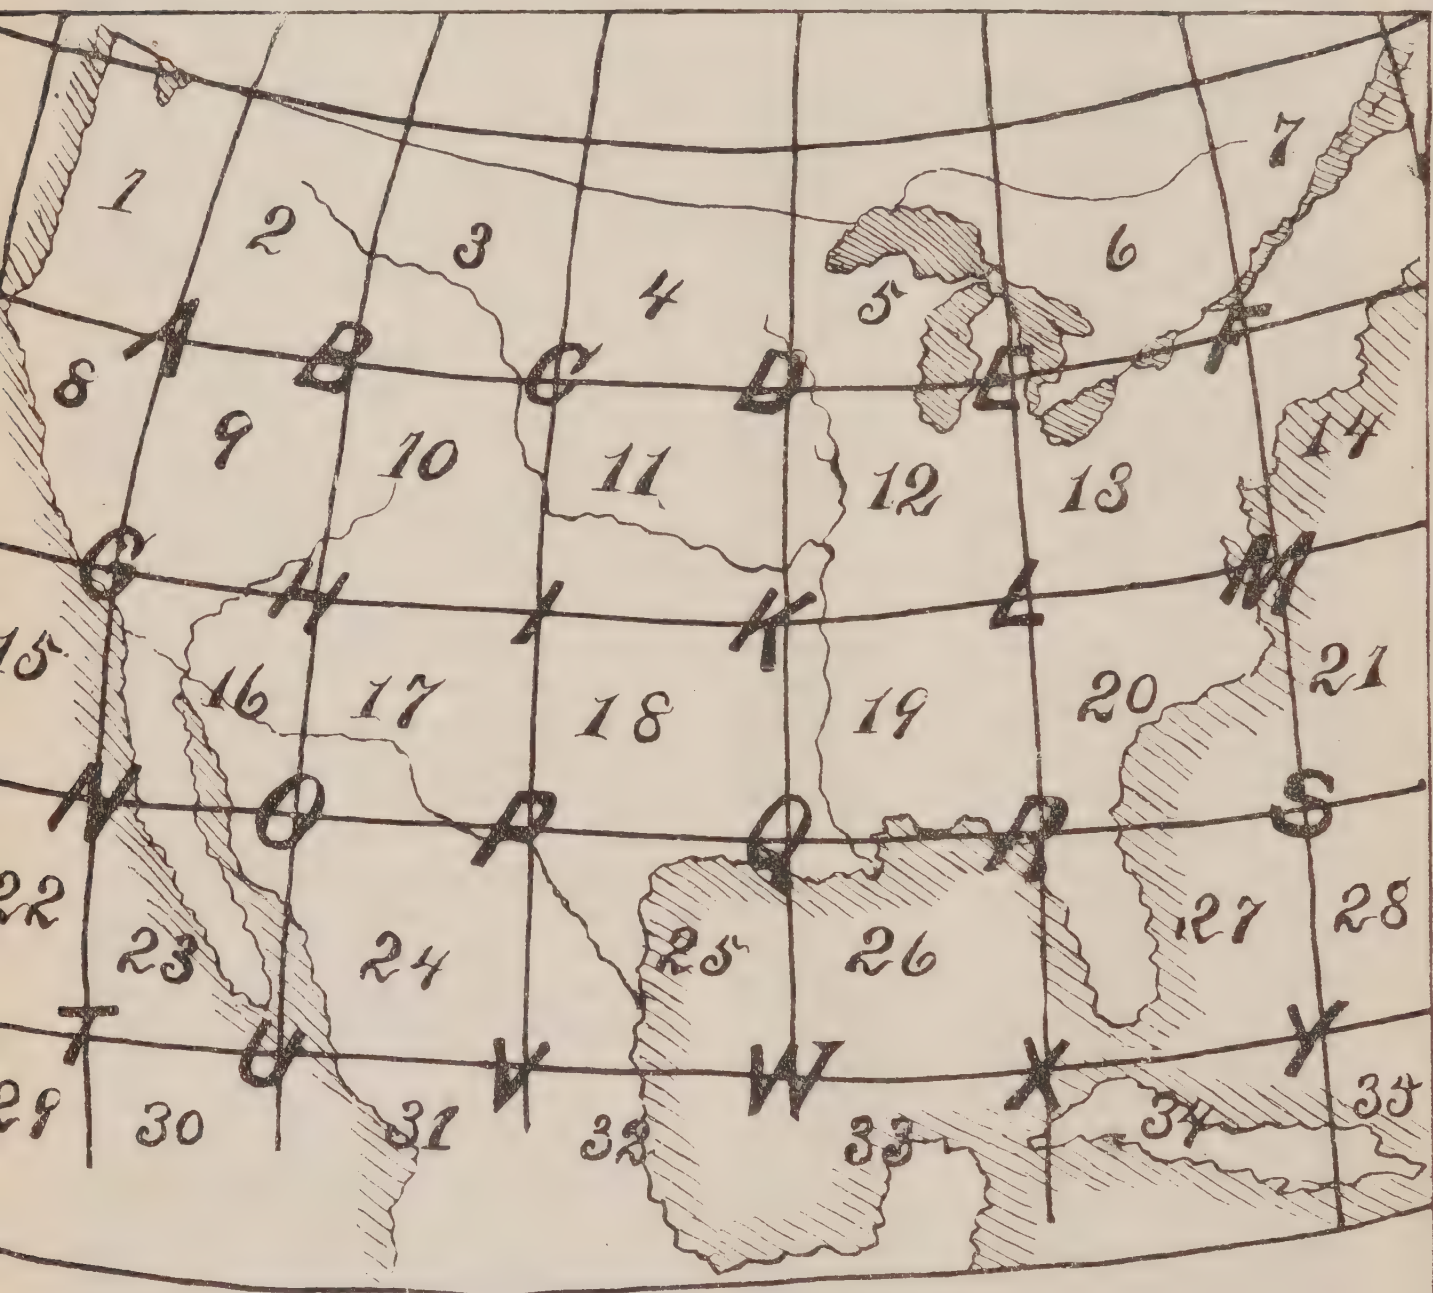 1 2 3 4 5 6 7
A B C D E F
8 9 10 11 12 13 14
G H I K L M
15 16 17 18 19 20 21
N O P Q R S
22 23 24 25 26 27 28
T U V W X Y
29 30 31 32 33 34 35